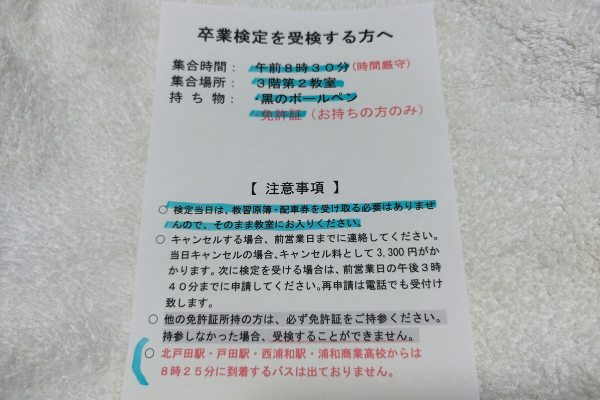 卒業検定を受検する方へ
集合時間： 午前８時３０分(時間厳守)
集合場所： ３階第２教室
持ち物： ・黒のボールペン
・免許証（お持ちの方のみ）
【 注意事項 】
○ 検定当日は、教習原簿・配車券を受け取る必要はありませ
んので、そのまま教室にお入りください。
○ キャンセルする場合、前営業日までに連絡してください。
当日キャンセルの場合、キャンセル料として 3,300 円がか
かります。次に検定を受ける場合は、前営業日の午後３時
４０分までに申請してください。再申請は電話でも受付け
致します。
○ 他の免許証所持の方は、必ず免許証をご持参ください。
持参しなかった場合、受検することができません。
○ 北戸田駅・戸田駅・西浦和駅・浦和商業高校からは
８時２５分に到着するバスは出ておりません。